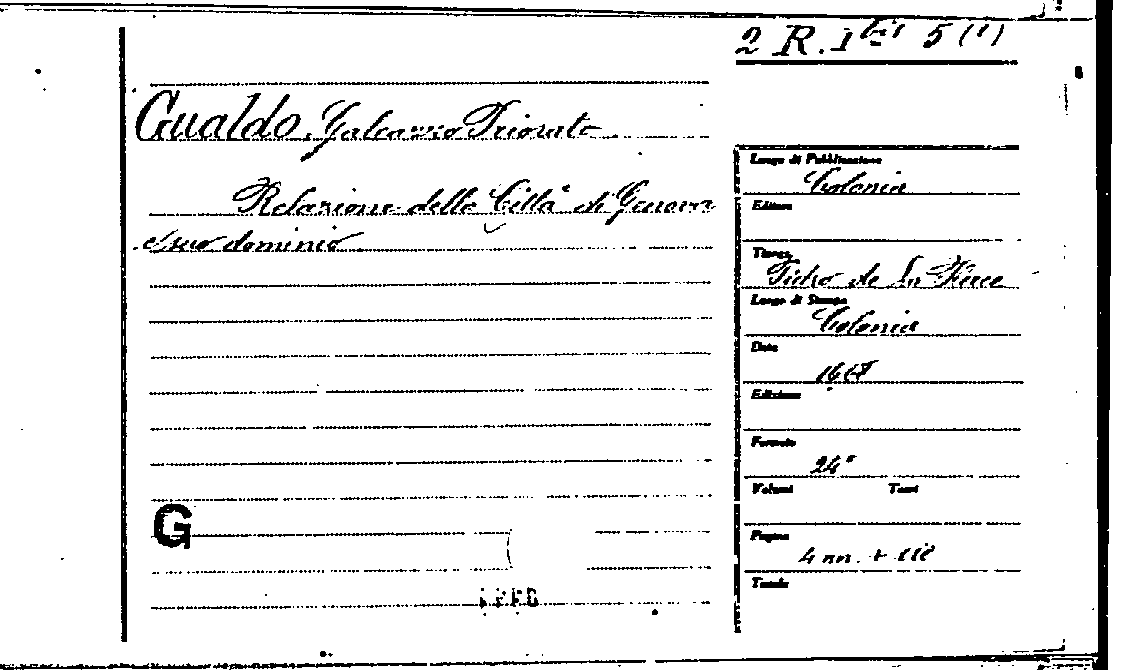 2 R. 1 bis 5 (1)
Gualdo, Galeazzo Priorato
Relazione della Città di Genova
e suo dominio
Luogo di Pubblicazione
Colonia
Editore
Tipogr.
Pietro de la Place
Luogo di Stampa
Colonia
Data
Edizione
Formato
24°
Volumi Tomi
Pagine
4 nn. +
Tavole
G